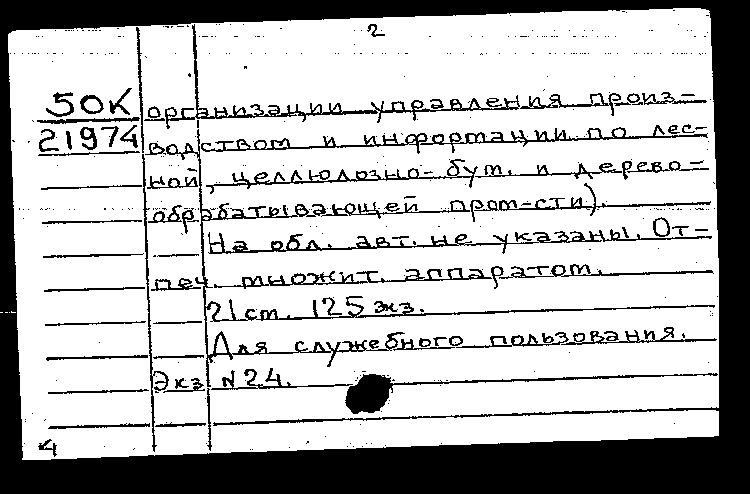 2
50К
21974
организации управления произ-
водством и информации по лес-
ной, целлюлозно-бум. и дерево-
обрабатывающей пром-сти).
На обл. авт. не указаны. От-
печ. множит. аппаратом.
21 см. 125 экз.
Для служебного пользования.
Экз N 24.
4